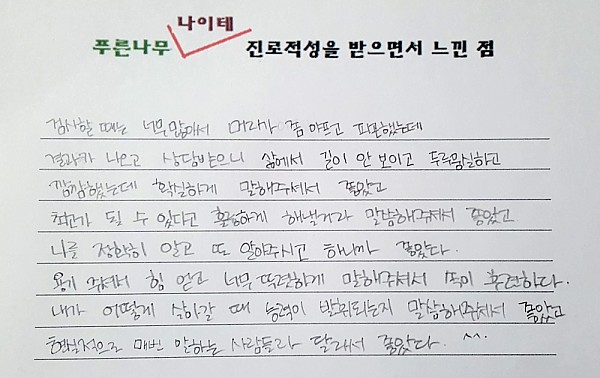 나이테
푸른나무 진로적성을 받으면서 느낀 점
검사할 때는 너무 많아서 머리가 좀 아프고 피곤했는데
결과가 나오고 상담받으니 삶에서 길이 안 보이고 두루뭉실하고
깜깜했는데 확실하게 말해주셔서 좋았고
최고가 될 수 있다고 훌륭하게 해낼거라 말씀해주셔서 좋았고
나를 정확히 알고 또 알아주시고 하니까 좋았다.
용기 주셔서 힘 얻고 너무 뚜렷하게 말해주셔서 속이 후련하다.
내가 어떻게 살아갈 때 능력이 발휘되는지 말씀해주셔서 좋았고
현실적으로 매번 말하는 사람들과 달래서 좋았다. ^^